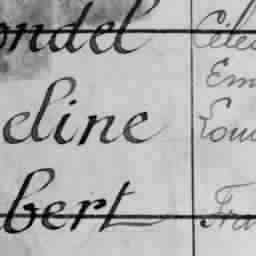 ondel Céles
Em
eline Loui
bert Fra